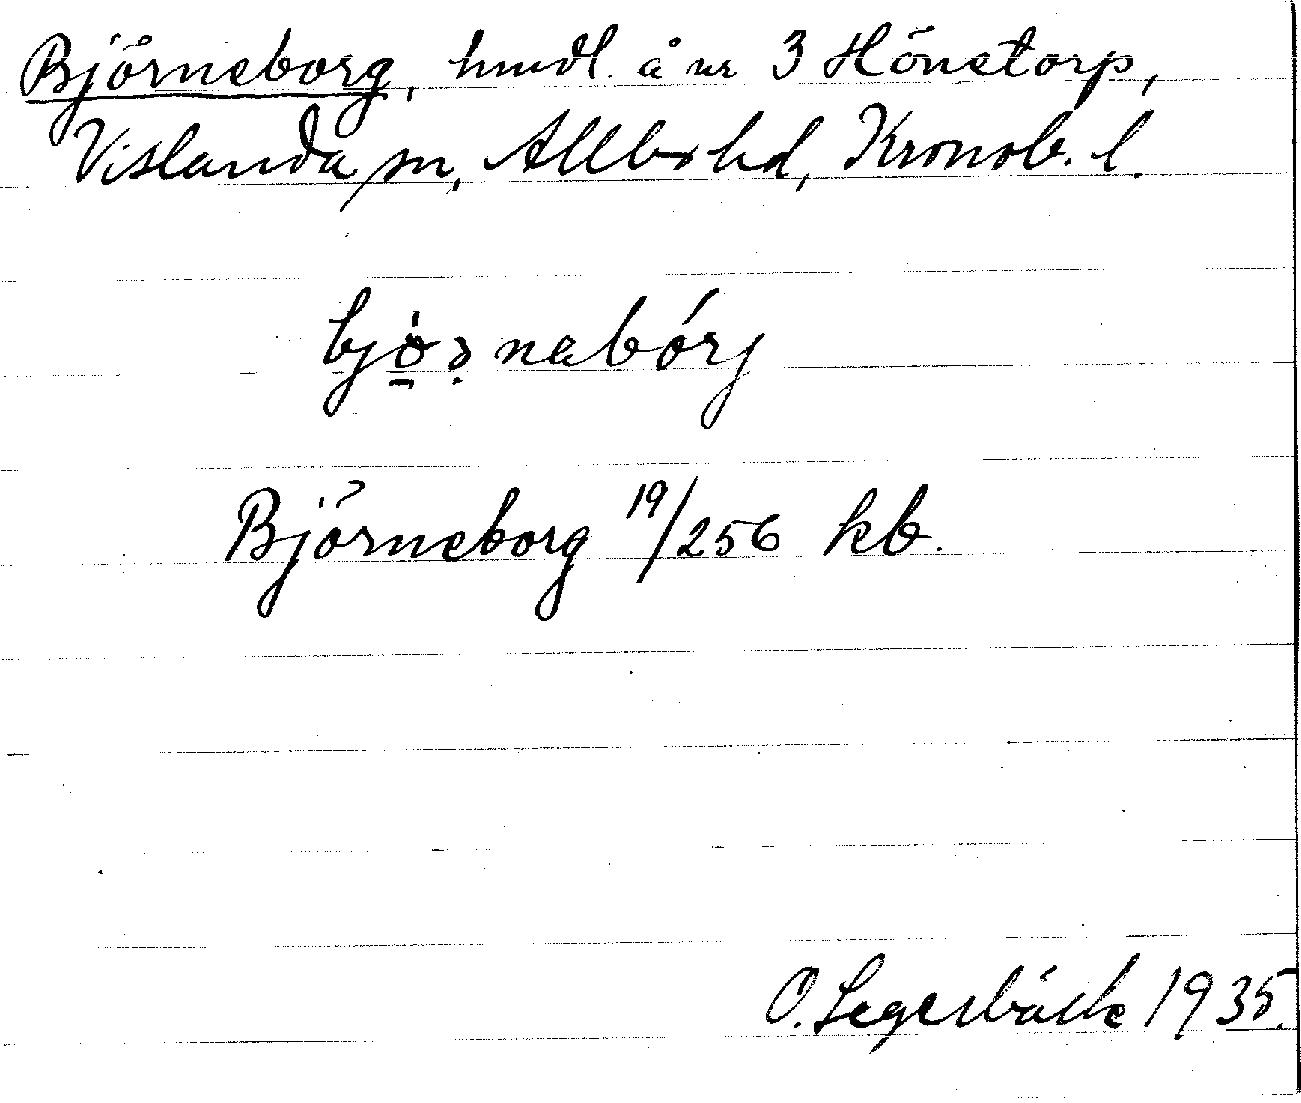 Björneborg, hmdl. å nr 3 Hönetorp,
Vislanda sn, Allbo hd, Kronob. l.
Björneborg 19/256 kb.
O. Segerbäck 1935.